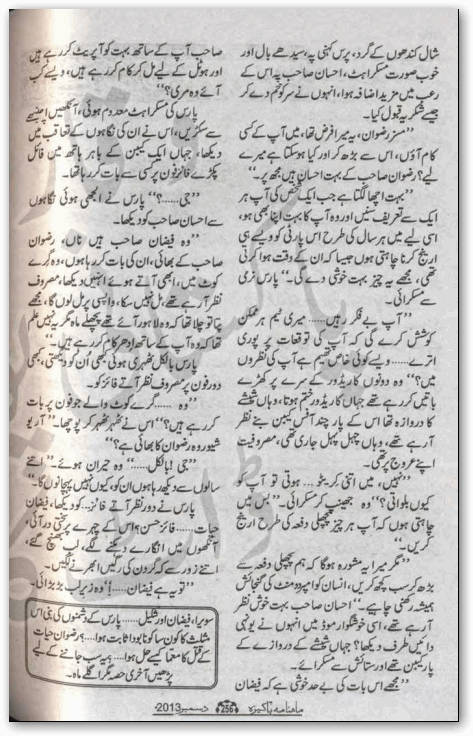 شال کندھوں کے گرد، پرس کہنی پہ، سیدھے بال اور
خوب صورت مسکراہٹ، احسان صاحب پہ اس کے
رعب میں مزید اضافہ ہوا، انہوں نے سر کو خم دے کر
جیسے شکریہ قبول کیا۔
”مسز رضوان، یہ میرا فرض تھا، میں آپ کے کسی
کام آؤں، اس سے بڑھ کر اور کیا ہو سکتا ہے میرے
لیے؟ رضوان صاحب کے بہت احسان ہیں مجھ پر۔“
”بہت اچھا لگتا ہے جب ایک شخص کی آپ ہر
ایک سے تعریف سنیں اور وہ آپ کا بہت اپنا بھی ہو،
اسی لیے میں ہر سال کی طرح اس پارٹی کو ویسے ہی
ارینج کرنا چاہتی ہوں جیسا کہ ان کے وقت ہوا کرتی
تھی، مجھے یہ چیز بہت خوشی دے گی۔“ پارس نرمی
سے مسکرائی۔
”آپ بے فکر رہیں...... میری ٹیم ہر ممکن
کوشش کرے گی کہ آپ کی توقعات پر پوری
اترے...... ویسے کوئی خاص تھیم ہے آپ کی نظروں
میں؟“ وہ دونوں کاریڈور کے سرے پر کھڑے
باتیں کر رہے تھے جہاں کاریڈور ختم ہوتا، وہاں شیشے
کا دروازہ تھا اس کے پار چند آفس کیبن بنے نظر
آ رہے تھے، وہاں چہل پہل جاری تھی، مصروفیت
اپنے عروج پر تھی۔
”نہیں، میں اتنی کریٹو... ہوتی تو آپ کو
کیوں بلواتی؟“ وہ جھینپ کر مسکرائی۔ ”بس میں
چاہتی ہوں کہ آپ ہر چیز پچھلی دفعہ کی طرح ارینج
کریں۔“
”مگر میرا یہ مشورہ ہو گا کہ ہم پچھلی دفعہ سے
بڑھ کر سب کچھ کریں، انسان کو امپروومنٹ کی گنجائش
ہمیشہ رکھنی چاہیے۔“ احسان صاحب بہت خوش نظر
آ رہے تھے، اسی خوشگوار موڈ میں انہوں نے یونہی
دائیں طرف دیکھا؟ جہاں شیشے کے دروازے کے
پار کیبن تھے اور ستائش سے مسکرائے۔
”مجھے اس بات کی بے حد خوشی ہے کہ فیضان
صاحب آپ کے ساتھ بہت کو آپریٹ کر رہے ہیں
اور ہوٹل کے لیے مل کر کام کر رہے ہیں، ویسے کب
آئے وہ مری؟“
پارس کی مسکراہٹ معدوم ہوئی، آنکھیں اچنبھے
سے سکڑیں، اس نے ان کی نگاہوں کے تعاقب میں
دیکھا، جہاں ایک کیبن کے باہر ہاتھ میں فائل
پکڑے فائز فون پر کسی سے بات کر رہا تھا۔
”جی......؟“ پارس نے الجھی ہوئی نگاہوں
سے احسان صاحب کو دیکھا۔
”وہ فیضان صاحب ہیں ناں، رضوان
صاحب کے بھائی، ان کی بات کر رہا ہوں، وہ گرے
کوٹ میں، ابھی آتے ہوئے انہیں دیکھا، مصروف
نظر آ رہے تھے، مل نہیں سکا، واپسی پر مل لوں گا، مجھے
پتا تو چلا تھا کہ وہ لاہور آئے تھے پچھلے ماہ مگر یہ نہیں علم
تھا کہ وہ آپ کے ساتھ ادھر کام کر رہے ہیں۔“
پارس بالکل ٹھہری ہوئی کبھی اُن کو دیکھتی، کبھی
دور فون پر مصروف نظر آتے فائز کو۔
”وہ ...... گرے کوٹ والے جو فون پر بات
کر رہے ہیں؟“ اس نے ٹھہر ٹھہر کر پوچھا۔ ”آر یو
شیور وہ رضوان کا بھائی ہے؟“
”جی! بالکل......“ وہ حیران ہوئے۔ ”اتنے
سالوں سے دیکھ رہا ہوں ان کو، کیوں نہیں پہچانوں گا۔“
پارس نے دور نظر آتے فائز... کو دیکھا، فیضان
حیات...... فائز حسن! اس کے چہرے پر سختی در آئی،
آنکھوں میں انگارے دہکنے لگے، لب بھینچ گئے،
اتنے زور سے کہ گردن کی رگیں ابھرنے لگیں۔
”تو یہ ہے فیضان....!“ وہ زیرِ لب بڑبڑائی۔
سویرا، فیضان اور شکیل...... پارس کے دشمنوں کی بنی اس
مثلث کا کون سا کونا بودا ثابت ہوا....؟ رضوان حیات
کے قتل کا معمّا کیسے حل ہوا....؟ یہ سب جاننے کے لیے
پڑھیں آخری حصہ مگر اگلے ماہ۔
ماہنامہ پاکیزہ 256 دسمبر 2013ء